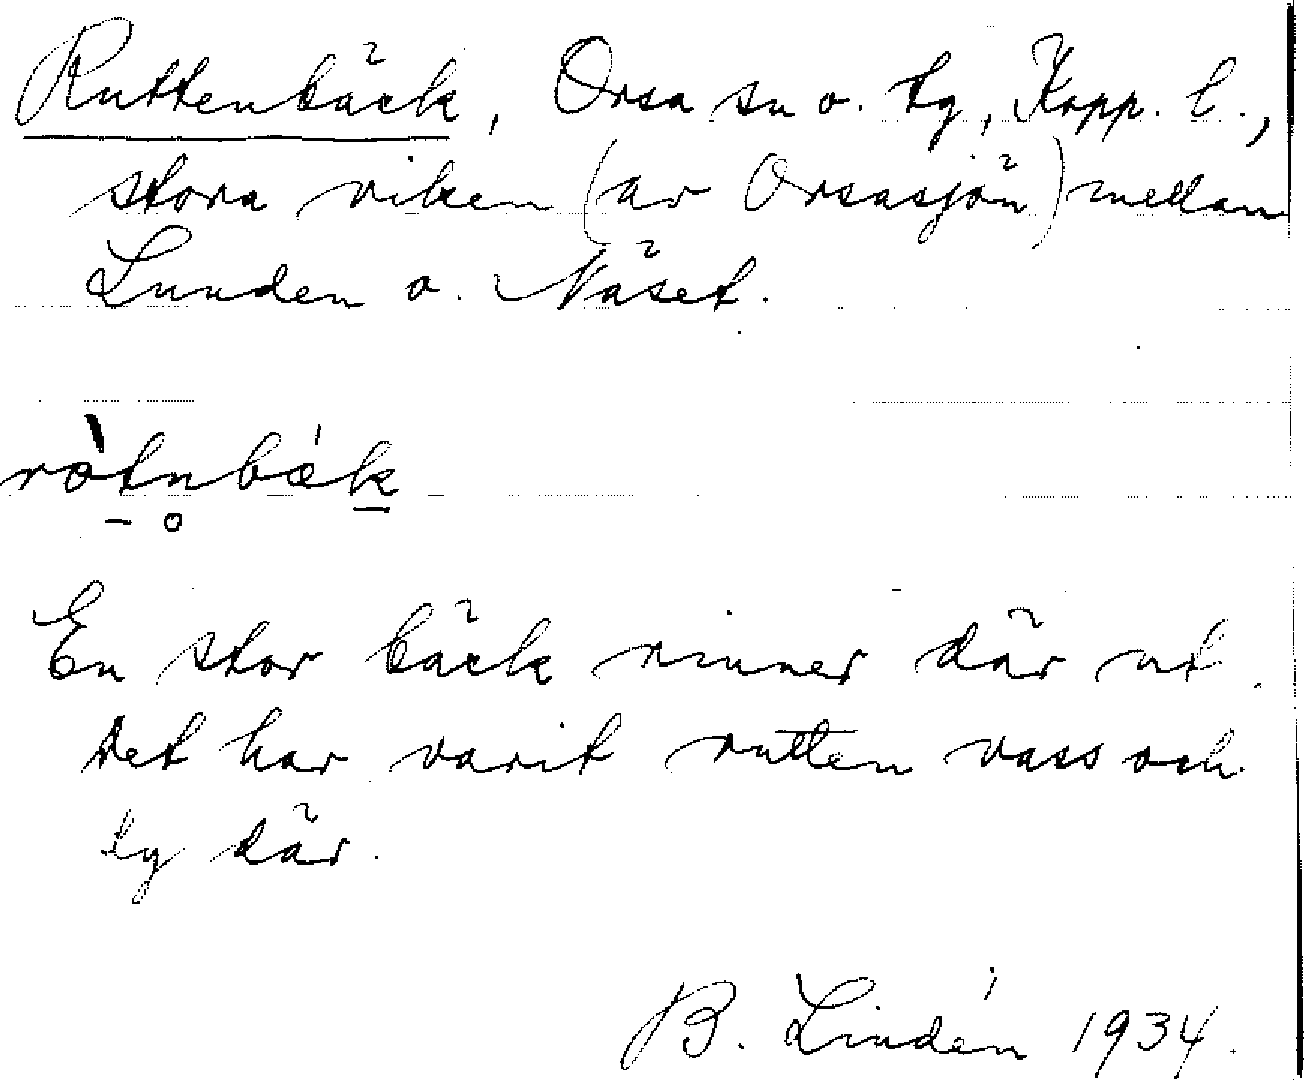 Ruttenbäck, Orsa sn o. tg, Kopp. l.,
stora viken (av Orsasjön) mellan
Lunden o. Näset.
En stor bäck rinner där ut.
Det har varit rutten vass och
dy där.
B. Lindén 1934.